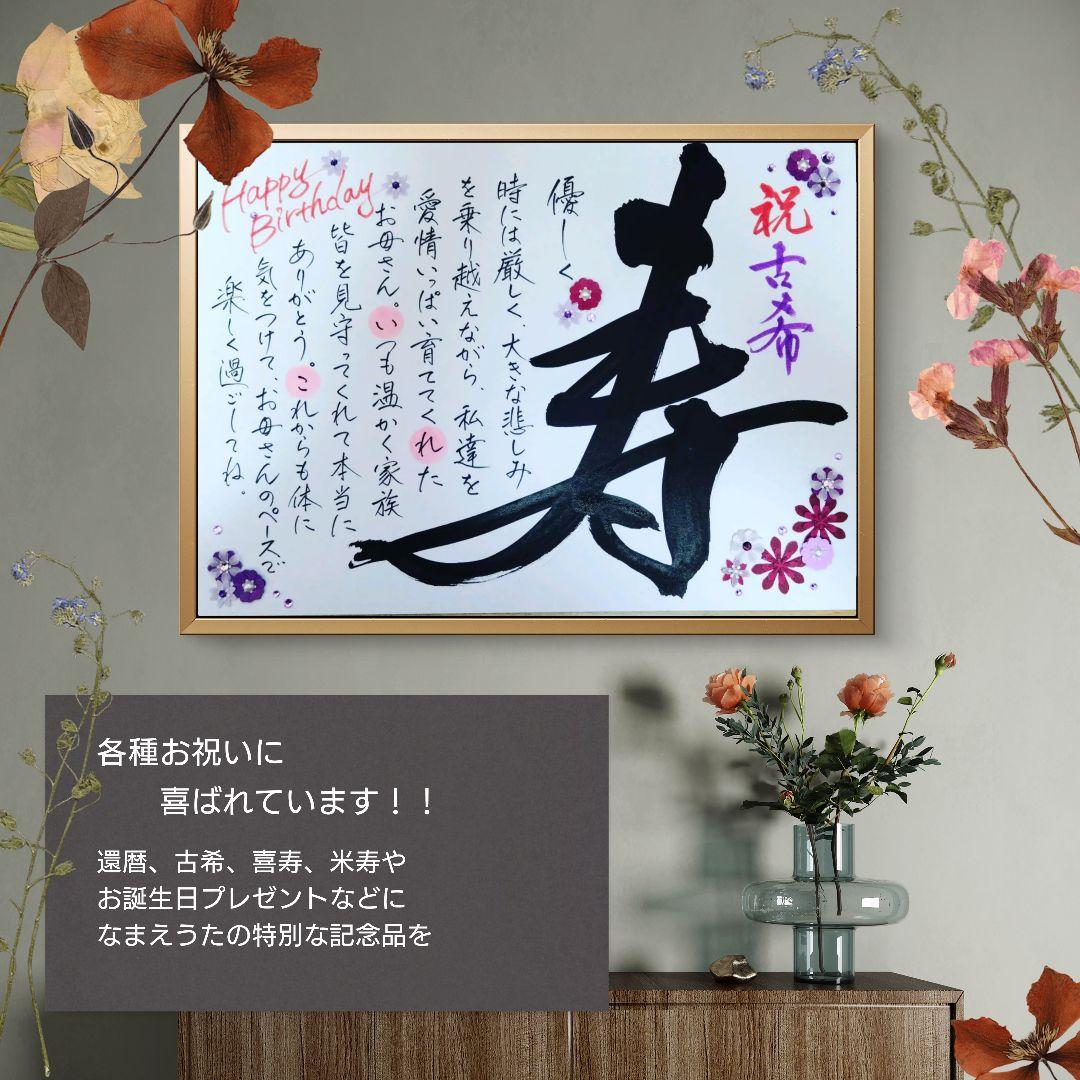 祝古希
寿
優しく
時には厳しく、大きな悲しみ
を乗り越えながら、私達を
愛情いっぱい育ててくれた
お母さん。いつも温かく家族
皆を見守ってくれて本当に
ありがとう。これからも体に
気をつけて、お母さんのペースで
楽しく過ごしてね。
Happy
Birthday
各種お祝いに
喜ばれています！！
還暦、古希、喜寿、米寿や
お誕生日プレゼントなどに
なまえうたの特別な記念品を